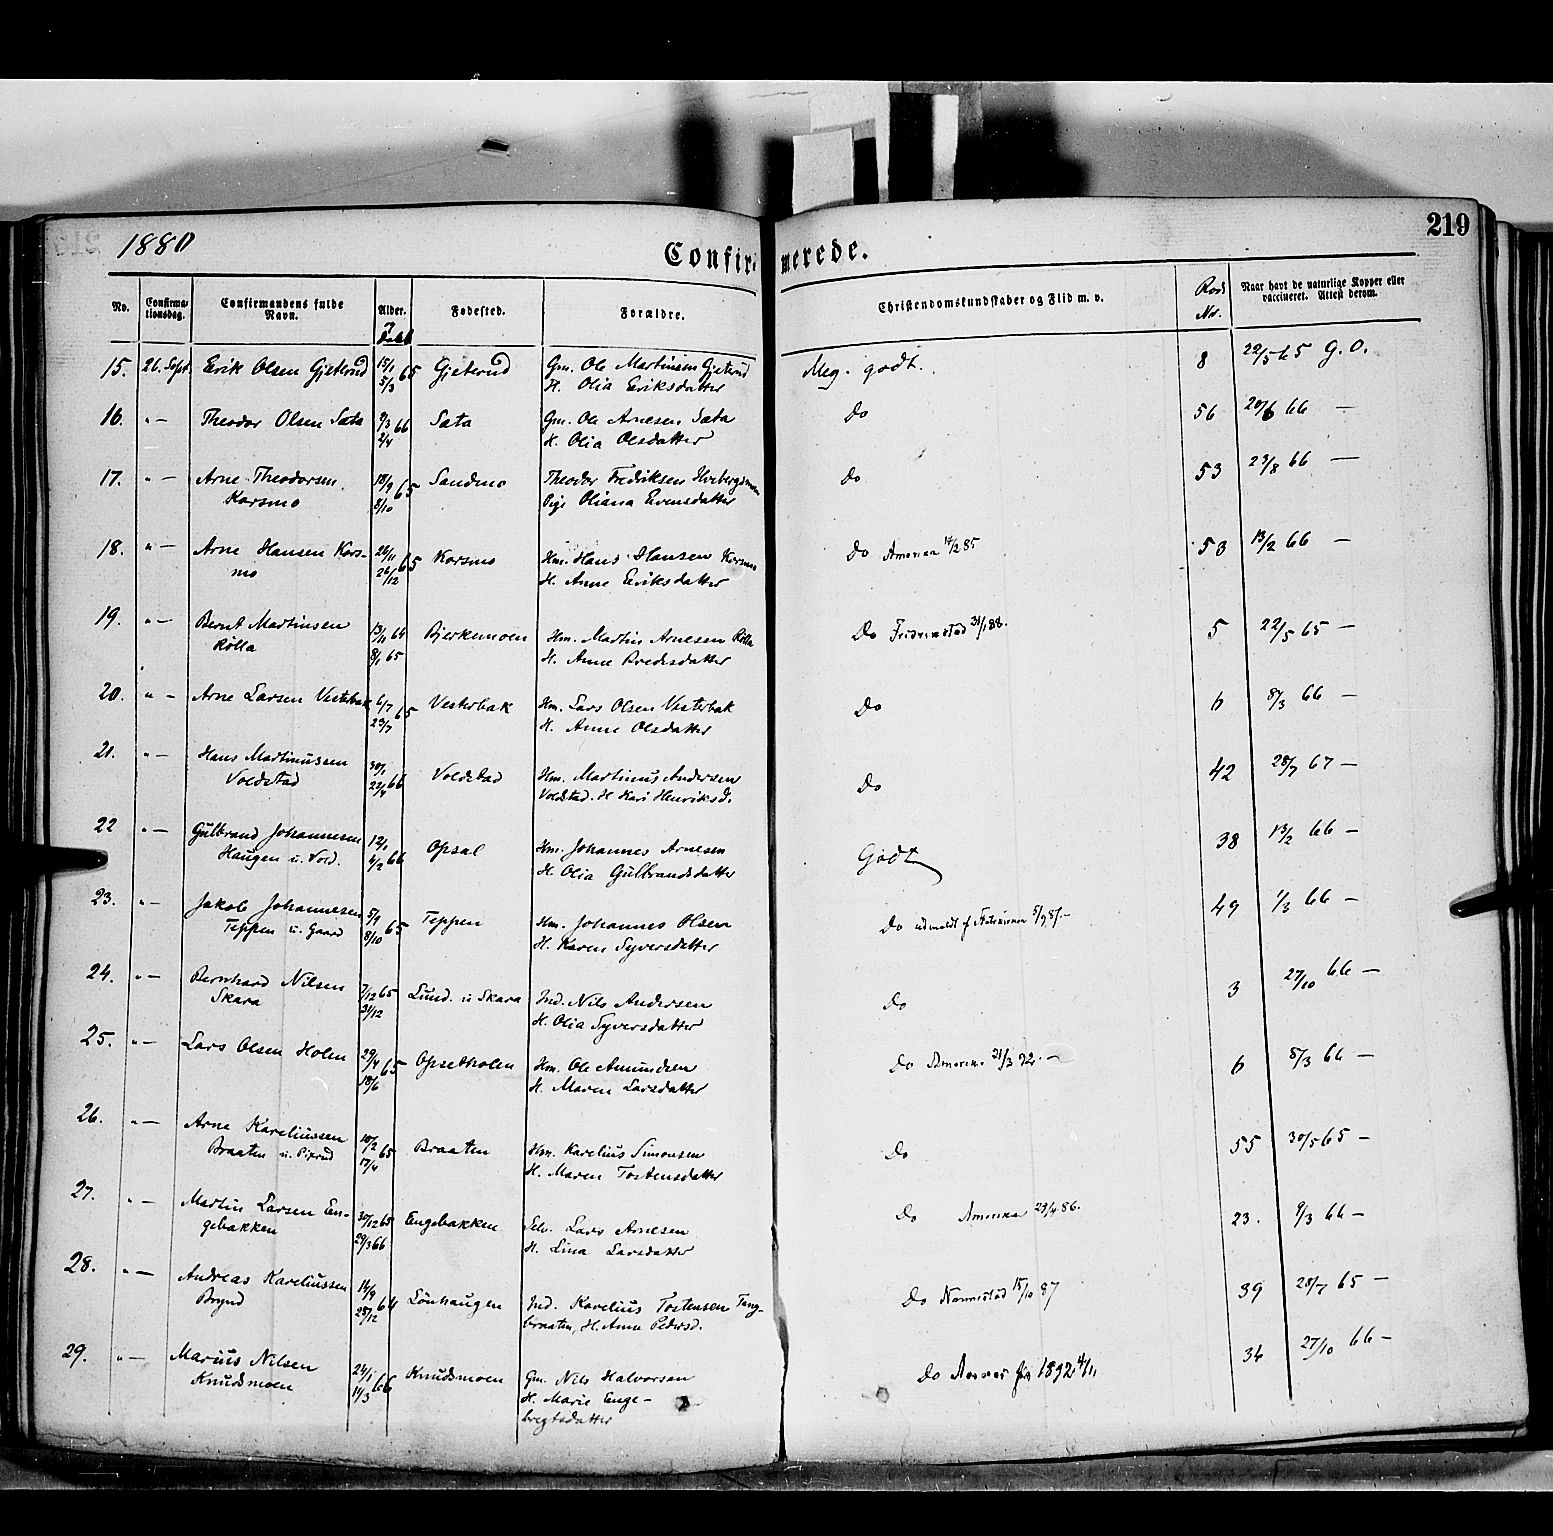 219
1880
Confirmerede.
No. Confirmationsdag. Confirmandens fulde Navn. Alder. Fødested. Forældre. Christendomskundskaber og Flid m. v. Rod Nr. Naar havt de naturlige Kopper eller vaccineret. Attest derom.
15. 26. Sept. Erik Olsen Gjeterud 15/1 65 Gjeterud Gm. Ole Martinsen Gjeterud Meg. godt. 8 22/5 65 G. O.
5/3 H. Olia Eriksdatter
16. " — Theodor Olsen Sæta 9/3 66 Sæta Gm. Ole Arnesen Sæta Do 56 20/6 66 —
2/4 H. Olia Olsdatter
17. " — Arne Theodorsen 18/9 65 Sandmo Theodor Fredriksen Do 53 23/8 66 —
Korsmo 8/10 Pige Oliana Evensdatter
18. " — Arne Hansen Kors- 26/11 65 Korsmo Hm. Hans Hansen Korsmo Do Amerika 14/2 85 53 13/2 66 —
mo 26/12 H. Anne Eriksdatter
19. " — Bernt Martinsen 13/11 64 Bjerkemoen Hm. Martin Arnesen Rølla Do Fredrikstad 31/1 88. 5 22/5 65 —
Rølla 8/1 65 H. Anne
20. " — Arne Larsen Vesterbak 6/7 65 Vesterbak Hm. Lars Olsen Vesterbak Do 6 8/3 66 —
23/7 H. Anne Olsdatter
21. " — Hans Martinussen 30/1 66 Voldstad Hm. Martinus Andersen Do 42 28/7 67 —
Voldstad 22/4 Voldstad. H. Kari Henriksd.
22 " — Gulbrand Johannesen 12/1 66 Opsal Hm. Johannes Arnesen Godt 38 13/2 66 —
Haugen u. Vold. 4/2 H. Olia Gulbrandsdatter
23. " — Jakob Johannesen 5/9 65 Teppen Hm. Johannes Olsen Do udmeldt f. 49 1/3 66 —
Teppen u. Gaard 8/10 H. Karen Syversdatter
24. " — Bernhard Nilsen 7/12 65 Lund. u Skara Ind. Nils Andersen Do 3 27/10 66 —
Skara 31/12 H. Olia Syversdatter
25. " — Lars Olsen Holen 29/4 65 Opsetholen Hm. Ole Amundsen Do Amerika 31/3 92. — 6 8/3 66 —
18/6 H. Maren Larsdatter
26. " — Arne Kareliussen 10/2 65 Braaten Hm. Karelius Simonsen Do 55 30/5 65 —
Braaten u. Piprud 17/4 H. Maren Tostensdatter
27. " — Martin Larsen En- 30/12 65 Engebakken Selv. Lars Arnesen Do Amerika 23/4 86. 23. 9/3 66 —
gebakken 29/3 66 H. Lina Larsdatter
28. " — Andreas Kareliussen 14/9 64 Lönhaugen Ind. Karelius Tostensen Tang- Do Nannestad 15/10 87 39 28/7 65 —
Brynd 28/12 braaten, H. Anne Pedersd.
29. " — Marius Nilsen 24/1 66 Knudsmoen Gm. Nils Halvorsen Do 1892 4/11 34 27/10 66 —
Knudsmoen 11/3 H. Marie Enge-
bregtsdatter